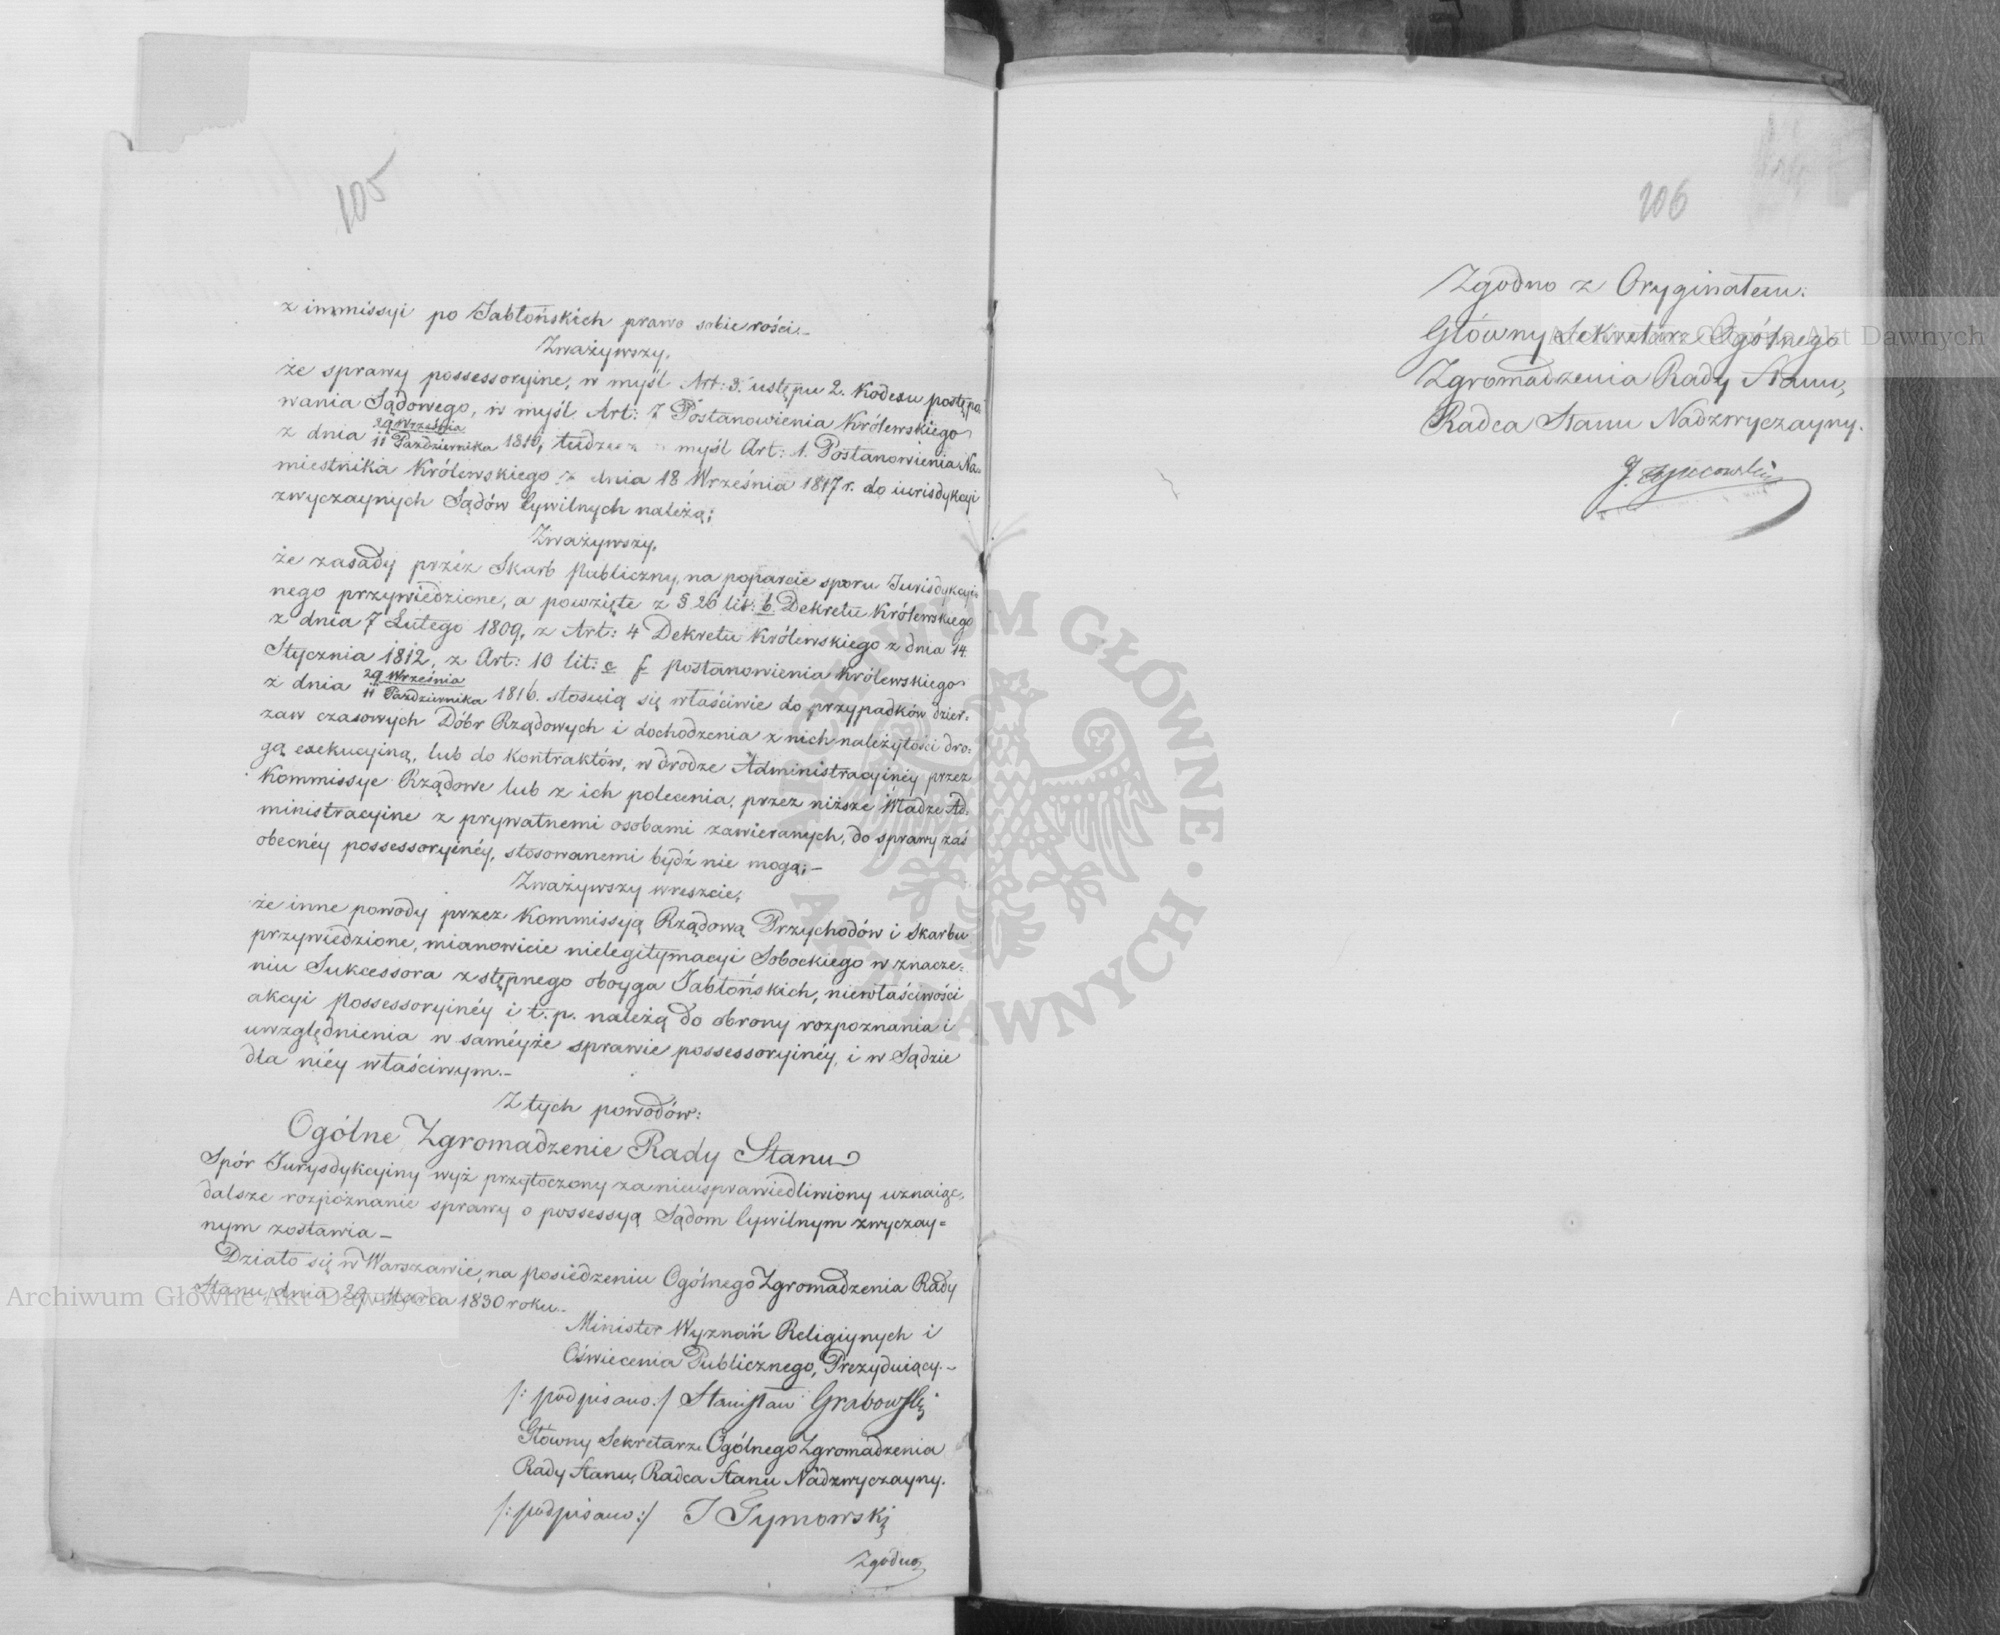 105
z immissyi po Jabłońskich prawo sobie rości.-
Zważywszy,
że sprawy possessoryine, w myśl Art: 3. ustępu 2. Kodexu postępo=
wania Sądowego, w myśl Art: 7 Postanowienia Królewskiego
z dnia 29 Września / 11 Października 1816, tudzież w myśl Art: 1. Postanowienia Na=
miestnika Królewskiego z dnia 18 Września 1817 r. do iurisdykcyi
zwyczaynych Sądów Cywilnych należą;
Zważywszy,
że zasady przez Skarb Publiczny, na poparcie sporu Jurisdykcyi=
nego przywiedzione, a powzięte z § 26 lit: b. Dekretu Królewskiego
z dnia 7 Lutego 1809, z Art: 4 Dekretu Królewskiego z dnia 14.
Stycznia 1812, z Art: 10 lit: e f postanowienia Królewskiego
z dnia 29 Września / 11 Października 1816. stosuią się właściwie do przypadków dzier=
zaw czasowych Dóbr Rządowych i dochodzenia z nich należytości dro=
gą exekucyiną, lub do kontraktów, w drodze Administracyinéy przez
Kommissye Rządowe lub z ich polecenia, przez niższe Władze Ad=
ministracyine z prywatnemi osobami zawieranych, do sprawy zaś
obecnéy possessoryinéy, stosowanemi bydź nie mogą;-
Zważywszy wreszcie,
że inne powody przez Kommissyą Rządową Przychodów i Skarbu
przywiedzione, mianowicie nielegitymacyi Sobockiego w znacze=
niu Sukcessora zstępnego oboyga Jabłońskich, niewłaściwości
akcyi possessoryinéy i t. p. należą do obrony rozpoznania i
uwzględnienia w saméyże sprawie possessoryinéy, i w Sądzie
dla niéy właściwym.-
Z tych powodów:
Ogólne Zgromadzenie Rady Stanu
Spór Jurysdykcyiny wyż przytoczony za nieusprawiedliwiony uznaiąc,
dalsze rozpoznanie sprawy o possessyą Sądom Cywilnym zwyczay=
nym zostawia -
Działo się w Warszawie, na posiedzeniu Ogólnego Zgromadzenia Rady
Stanu, dnia 29 Marca 1830 roku.-
Minister Wyznań Religiynych i
Oświecenia Publicznego, Prezyduiący.-
/: podpisano :/ Stanisław Grabowski
Główny Sekretarz Ogólnego Zgromadzenia
Rady Stanu, Radca Stanu Nadzwyczayny.
/: podpisano :/ J Tymowski
Zgodno
106
Zgodno z Oryginałem:
Główny Sekretarz Ogólnego
Zgromadzenia Rady Stanu,
Radca Stanu Nadzwyczayny.
J. Tymowski
Archiwum Główne Akt Dawnych
Archiwum Główne Akt Dawnych
ARCHIWUM GŁÓWNE · AKT DAWNYCH ·